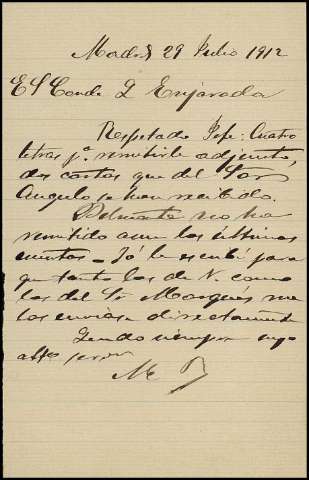 Madrid 29 Julio 1912
El Conde D Enjarada
Respetado Jefe: Cuatro
letras pª remitirle adjunto,
dos cartas que del Sor
Angulo se han recibido.
no ha
remitido aun las últimas
cuentas - Yó le escribí para
que tanto las de V. como
las del Sr Marqués me
las enviase directamente
siempre suyo
M